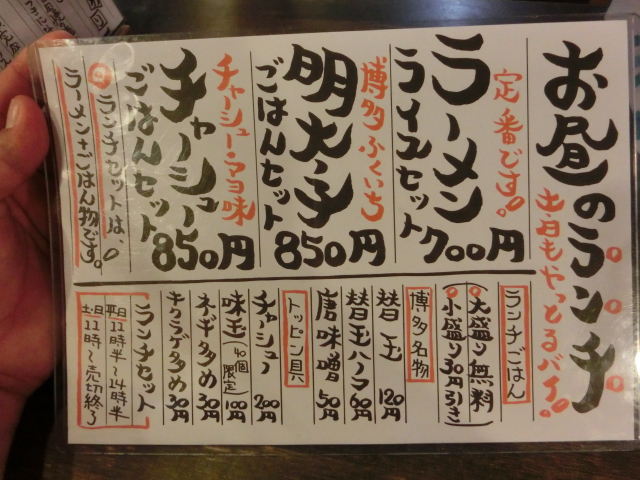 お昼のランチ
土・日もやっとるバイ。
定番です。
ラーメン
ライスセット700円
博多ふくいち
明太子
ごはんセット850円
チャーシュー・マヨ味
チャーシュー
ごはんセット850円
ランチセットは、
ラーメン+ごはん物です。
ランチごはん
大盛り無料
小盛り30円引き
博多名物
替玉 120円
替玉ハーフ 60円
唐味噌 50円
トッピン具
チャーシュー 200円
味玉(40個限定) 100円
ネギ多め 30円
キクラゲ多め 30円
ランチセット
平日11時半〜14時半
土日11時〜売切終了